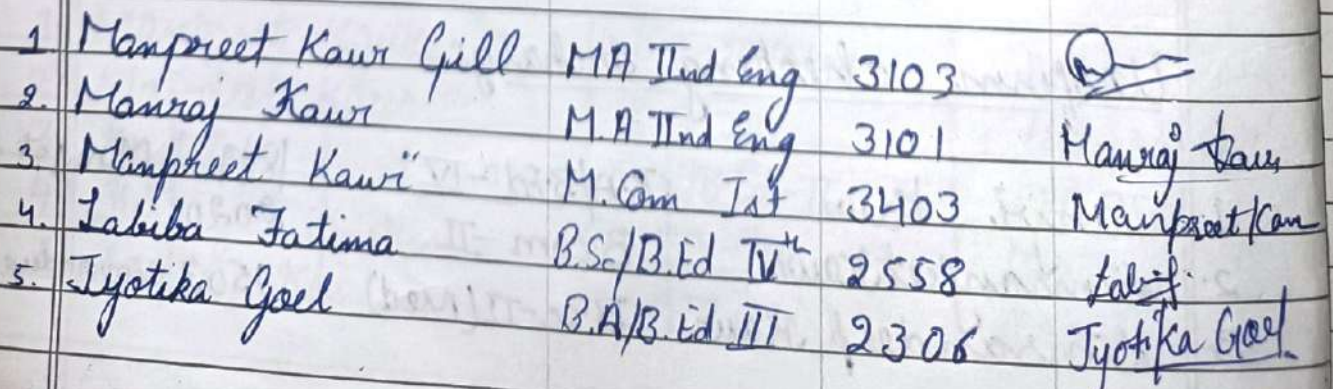 1 Manpreet Kaur Gill MA IInd Eng 3103
2. Manraj Kaur M.A IInd Eng 3101 Manraj Kaur
3. Manpreet Kaur M.Com Ist 3403 Manpreet Kaur
4. Labiba Fatima B.Sc/B.Ed IVth 2558
5. Jyotika Goel B.A/B.Ed III 2306 Jyotika Goel